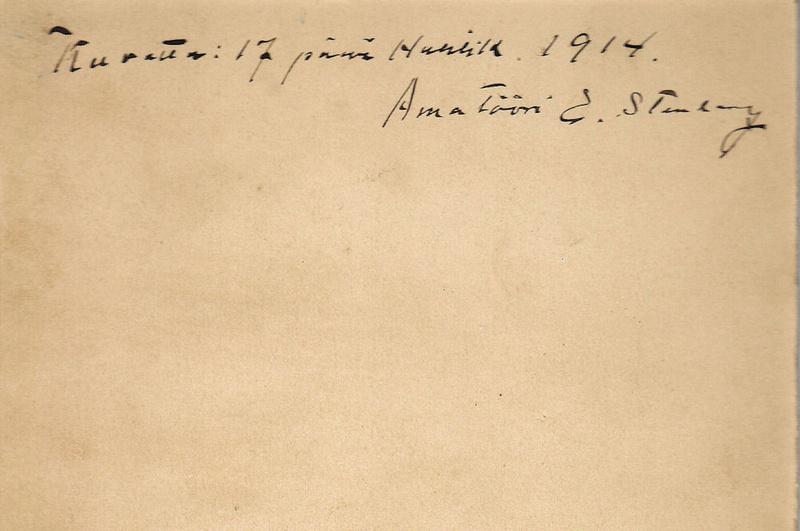 Kuvattu: 17 päivä Huhtik. 1914.
Amatööri E. Stenberg